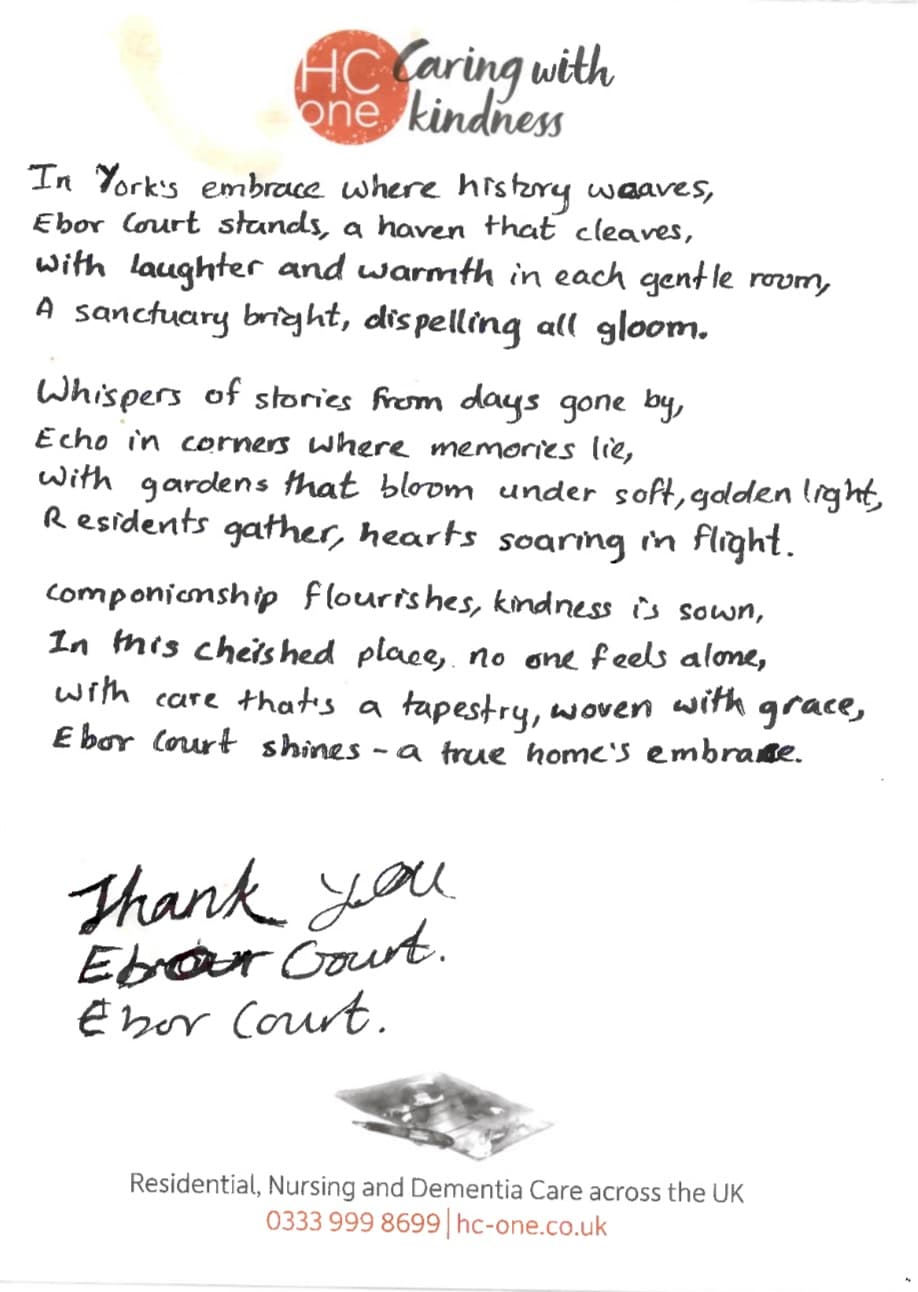 HC
one
Caring with
kindness
In York's embrace where history weaves,
Ebor Court stands, a haven that cleaves,
with laughter and warmth in each gentle room,
A sanctuary bright, dispelling all gloom.
Whispers of stories from days gone by,
Echo in corners where memories lie,
With gardens that bloom under soft, golden light,
Residents gather, hearts soaring in flight.
companionship flourishes, kindness is sown,
In this cheished place, no one feels alone,
with care that's a tapestry, woven with grace,
Ebor Court shines - a true home's embrace.
Thank you
Ebour Court.
Ebor Court.
Residential, Nursing and Dementia Care across the UK
0333 999 8699 | hc-one.co.uk